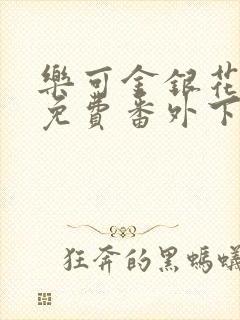 樂可金銀花
免費番外下
狂奔的黑螞蟻